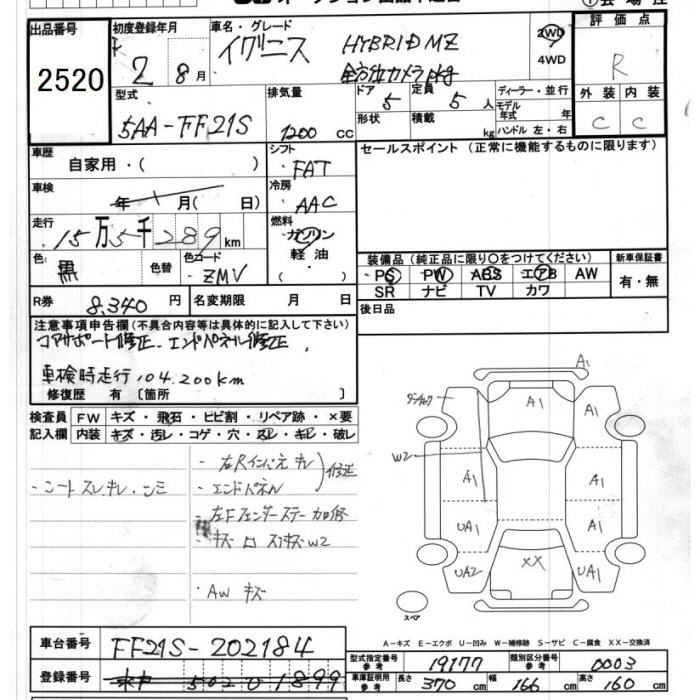 出品番号
2520
初度登録年月
R 2年 8月
車名・グレード
イグニス HYBRID MZ
全方位カメラpkg
2WD
4WD
評価点
R
外装 内装
C C
型式
5AA-FF21S
排気量
1200 cc
ドア 5
定員 5 人
形状
積載 kg
ディーラー・並行
モデル年式 年
ハンドル 左・右
車歴
自家用・( )
シフト
FAT
セールスポイント (正常に機能するものに限ります)
車検
年 月( 日)
冷房
AAC
走行
15万5千289km
燃料
・ガソリン
軽油・
・( )
色 黒
色替
色コード ZMV
装備品 (純正品に限り○をつけてください)
・PS ・PW ・ABS ・エアB ・AW
・SR ・ナビ ・TV ・カワ
新車保証書
有・無
R券 8,340 円
名変期限 月 日
後日品
注意事項申告欄 (不具合内容等は具体的に記入して下さい)
コアサポート修正、エンドパネル修正
車検時走行 104,200km
修復歴 有 [箇所 ]
検査員記入欄
FW キズ・飛石・ヒビ割・リペア跡・×要
内装 キズ・汚レ・コゲ・穴・スレ・キレ・破レ
・シートスレ、キレ、シミ
・左Rインパネキレ
・エンドパネル
修正
・左Fフェンダーステー加修
・キズ ロ スリキズW2
・AW キズ
A1
A1
A1
W2
A1
A1
UA1
A1
UA2
XX
UA1
スペア
A-キズ E-エクボ U-凹み W-補修跡 S-サビ C-腐食 XX-交換済
車台番号
FF21S-202184
登録番号
型式指定番号 参考 19177
類別区分番号 参考 0003
車庫証明用 参考 長さ 370 cm 幅 166 cm 高さ 160 cm